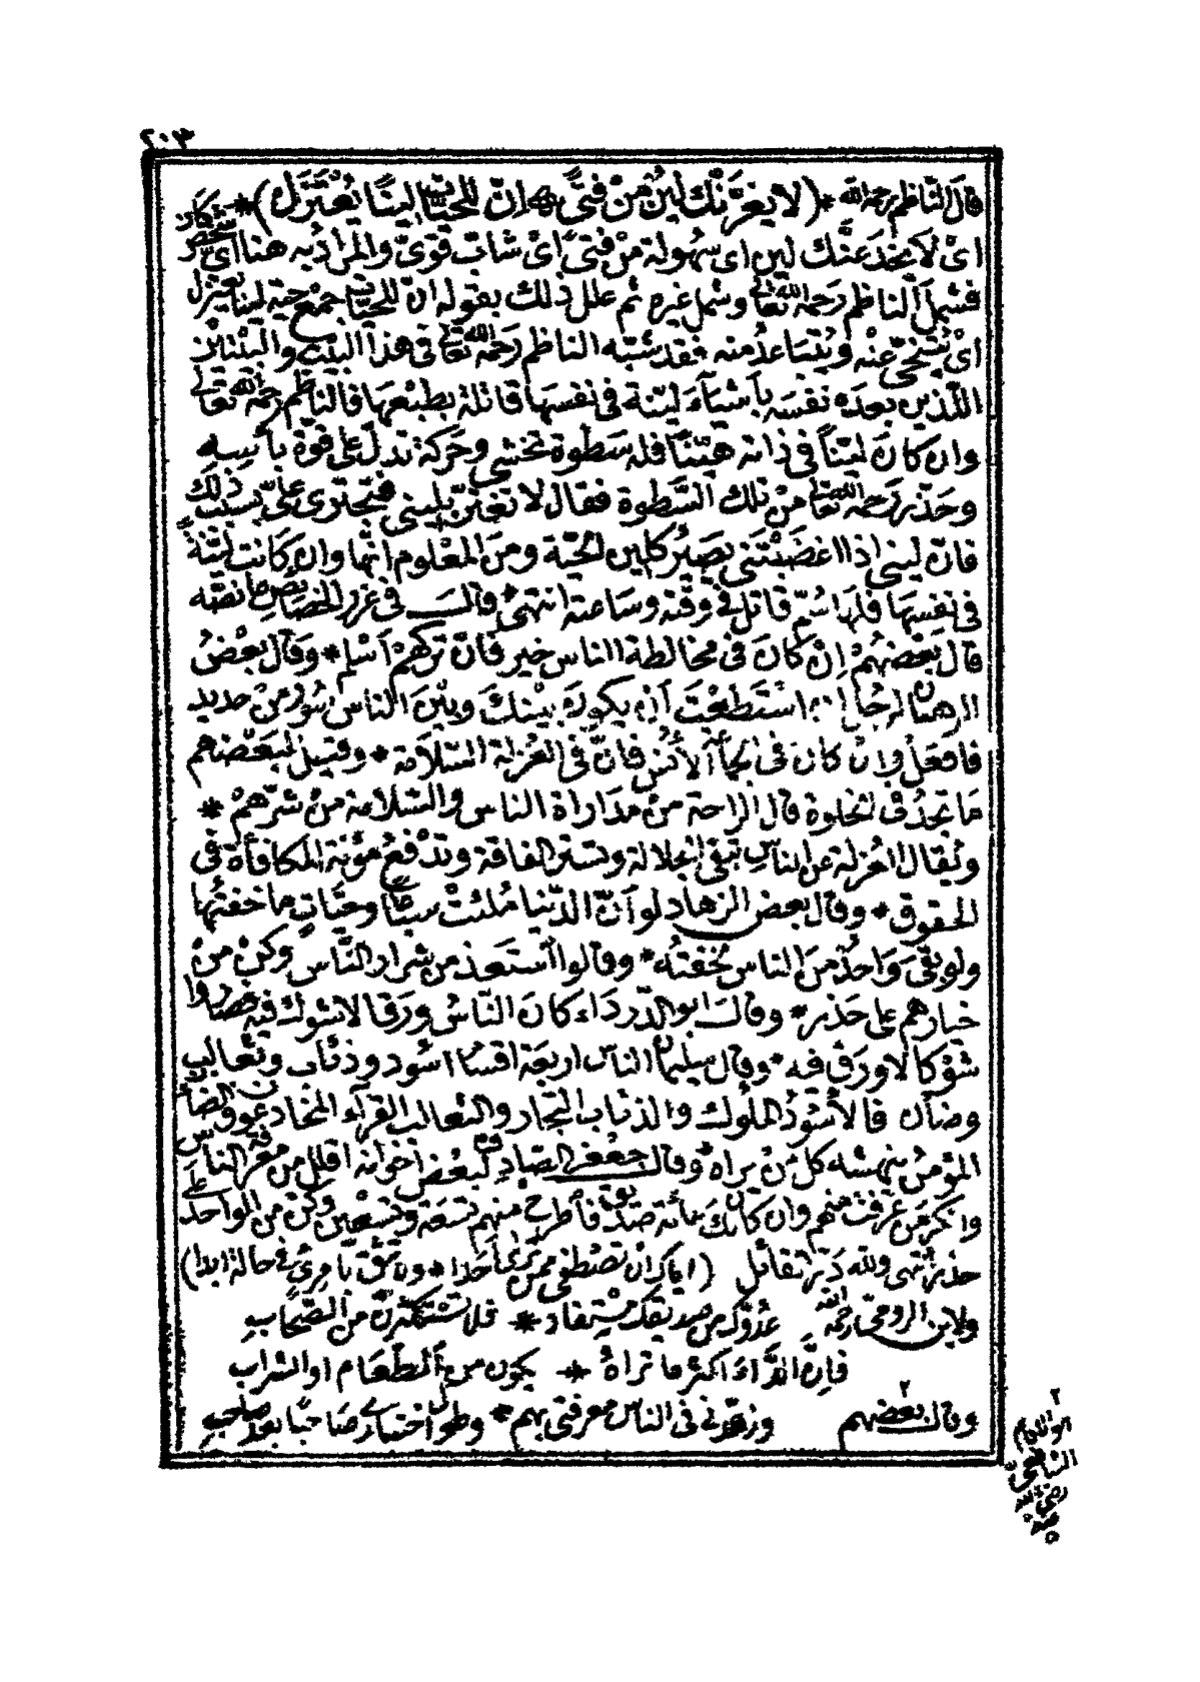 ٢٠٣
قال الناظم رحمه الله * (لا يغرنك لين من فتى * ان للحيات لينا يعتزل) *
اى لا يخدعنك لين اى سهولة من فتى اى شاب قوى والمراد به هنا اى شخص كان
فشمل الناظم رحمه الله تعالى وشمل غيره ثم علل ذلك بقوله ان للحيات جمع حية لينا يعتزل
اى يتنحى عنه ويتباعد منه فقد شبه الناظم رحمه الله تعالى فى هذا البيت والبيتين
اللذين بعده نفسه بأشياء لينة فى نفسها قاتلة بطبعها فالناظم رحمه الله تعالى
وان كان لينا فى ذاته هينا فله سطوة تخشى وحركة تدل على قوة بأسه
وحذر رحمه الله تعالى من تلك السطوة فقال لا تغتر بلينى فتجترى على بسبب ذلك
فان لينى اذا اغضبتنى يصير كلين الحية ومن المعلوم انها وان كانت لينة
فى نفسها فلها سم قاتل فى وقته وساعته انتهى * وقال فى غرر الخصائص ما نصه
قال بعضهم ان كان فى مخالطة الناس خير فان تركهم اسلم * وقال بعض
الرهبان لرجل ان استطعت ان يكون بينك وبين الناس سور من حديد
فافعل وان كان فى الجماعة الأنس فان فى العزلة السلامة * وقيل لبعضهم
ما تجد فى الخلوة قال الراحة من مداراة الناس والسلامة من شرهم *
ويقال العزلة عن الناس تبقى الجلالة وتستر الفاقة وتدفع مؤنة المكافأة فى
الحقوق * وقال بعض الزهاد لو أن الدنيا ملئت سباعا وحيات ما خفتها
ولو بقى واحد من الناس لخفته * وقالوا استعذ من شرار الناس وكن من
خيارهم على حذر * وقال ابو الدرداء كان الناس ورقا لا شوك فيه فصاروا
شوكا لا ورق فيه * وقال سليمان الناس اربعة اقسام اسود وذئاب وثعالب
وضأن فالأسود الملوك والذئاب التجار والثعالب القراء المخادعون والضأن
المؤمن ينهشه كل من يراه * وقال جعفر الصادق لبعض اخوانه اقلل من معرفة الناس
وانكر من عرفت منهم وان كان لك مائة صديق فاطرح منهم تسعة وتسعين وكن من الواحد على
حذر انتهى ولله در القائل (اياك ان تصطفى ممن ترى احدا * ولا تثق بامرئ فى حالة ابدا)
ولابن الرومى رحمه الله عدوك من صديقك مستفاد * فلا تستكثرن من الصحاب
فان الداء اكثر ما تراه * يكون من الطعام او الشراب
وقال بعضهم ٢ وزهدنى فى الناس معرفتى بهم * وطول اختبارى صاحبا بعد صاحب
٢
الشافعى
رضى الله
عنه